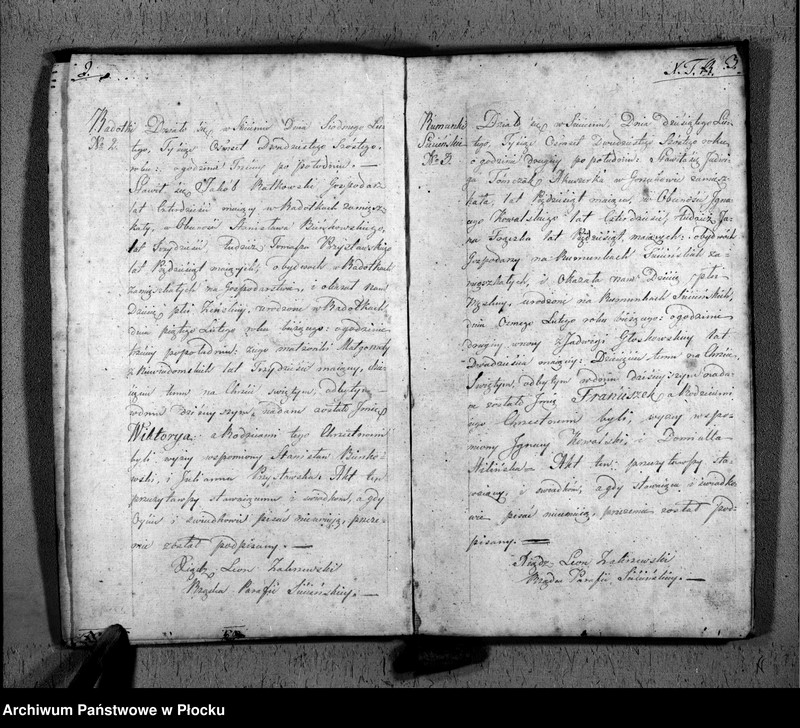 2.
Badotki
No 2.
Działo się w Sieciniu Dnia Siodmego Lu-
tego, Tysiąc Osmset Dwudziestego Szóstego
roku: o godzinie Trzeciey po południu. —
Stawił się Jakób Rutkowski Gospodarz
lat Czterdzieści maiący w Badotkach zamiesz-
kały, w Obecności Stanisława
lat Trzydzieści, tudzież Tomasza Przystawskiego
lat Pięćdziesiąt maiących, obydwóch w Badotkach
zamieszkałych na Gospodarstwie, i okazał nam
Dziecie płci Żeńskiey, urodzone w Badotkach,
dnia piątego Lutego roku bieżącego: o godzinie
trzeciey popołudniu: z iego małżonki Małgorzaty
z lat Trzydzieści maiącey, dzie-
cięciu temu na Chrzcie świętym, odbytym
w dniu dzisieyszym, nadane zostało Imie
Wiktorya: a Rodzicami tego Chrzestnemi
byli wyżey wspomniony Stanisław
i Julianna Przystawska, Akt ten
przeczytawszy stawaiącemu i świadkom, a gdy
Oyciec i świadkowie pisać nieumieią, przeze-
mnie został podpisany. —
Xiądz Leon Zaleszewski
Rządca Parafii Siecińskiey. —
N. T. A. 3.
Rumunki
Siecińskie
No 3.
Działo się w Sieciniu, Dnia dziesiątego Lu-
tego, Tysiąc Osmset Dwudziestego Szóstego roku,
o godzinie drugiey po południu: Stawiła się Jadwi-
ga Akuszerka w zamiesz-
kała, lat Pięćdziesiąt maiąca, w Obecności Igna-
cego Kowalskiego lat Czterdzieści, tudzież Ja-
na lat Pięćdziesiąt, maiących: obydwóch
Gospodarzy na Rumunkach Siecińskich za-
mieszkałych, i Okazała nam Dziecie płci
Męzkiey, urodzone na Rumunkach Siecińskich,
dnia Osmego Lutego roku bieżącego: o godzinie
drugiey w nocy z Jadwigi Głoskowskiey lat
Dwadzieścia maiącey: Dziecięciu temu na Chrzcie
Świętym, odbytym w dniu dzisieyszym nada-
ne zostało Imię Franciszek, a Rodzicami
iego Chrzestnemi byli, wyżey wspo-
mniony Ignacy Kowalski i
Akt ten, przeczytawszy sta-
waiącey i świadkom, a gdy stawaiąca i świadko-
wie pisać nieumieią, przezemnie został pod-
pisany. —
Xiądz Leon Zaleszewski
Rządca Parafii Siecińskiey. —
Archiwum Państwowe w Płocku